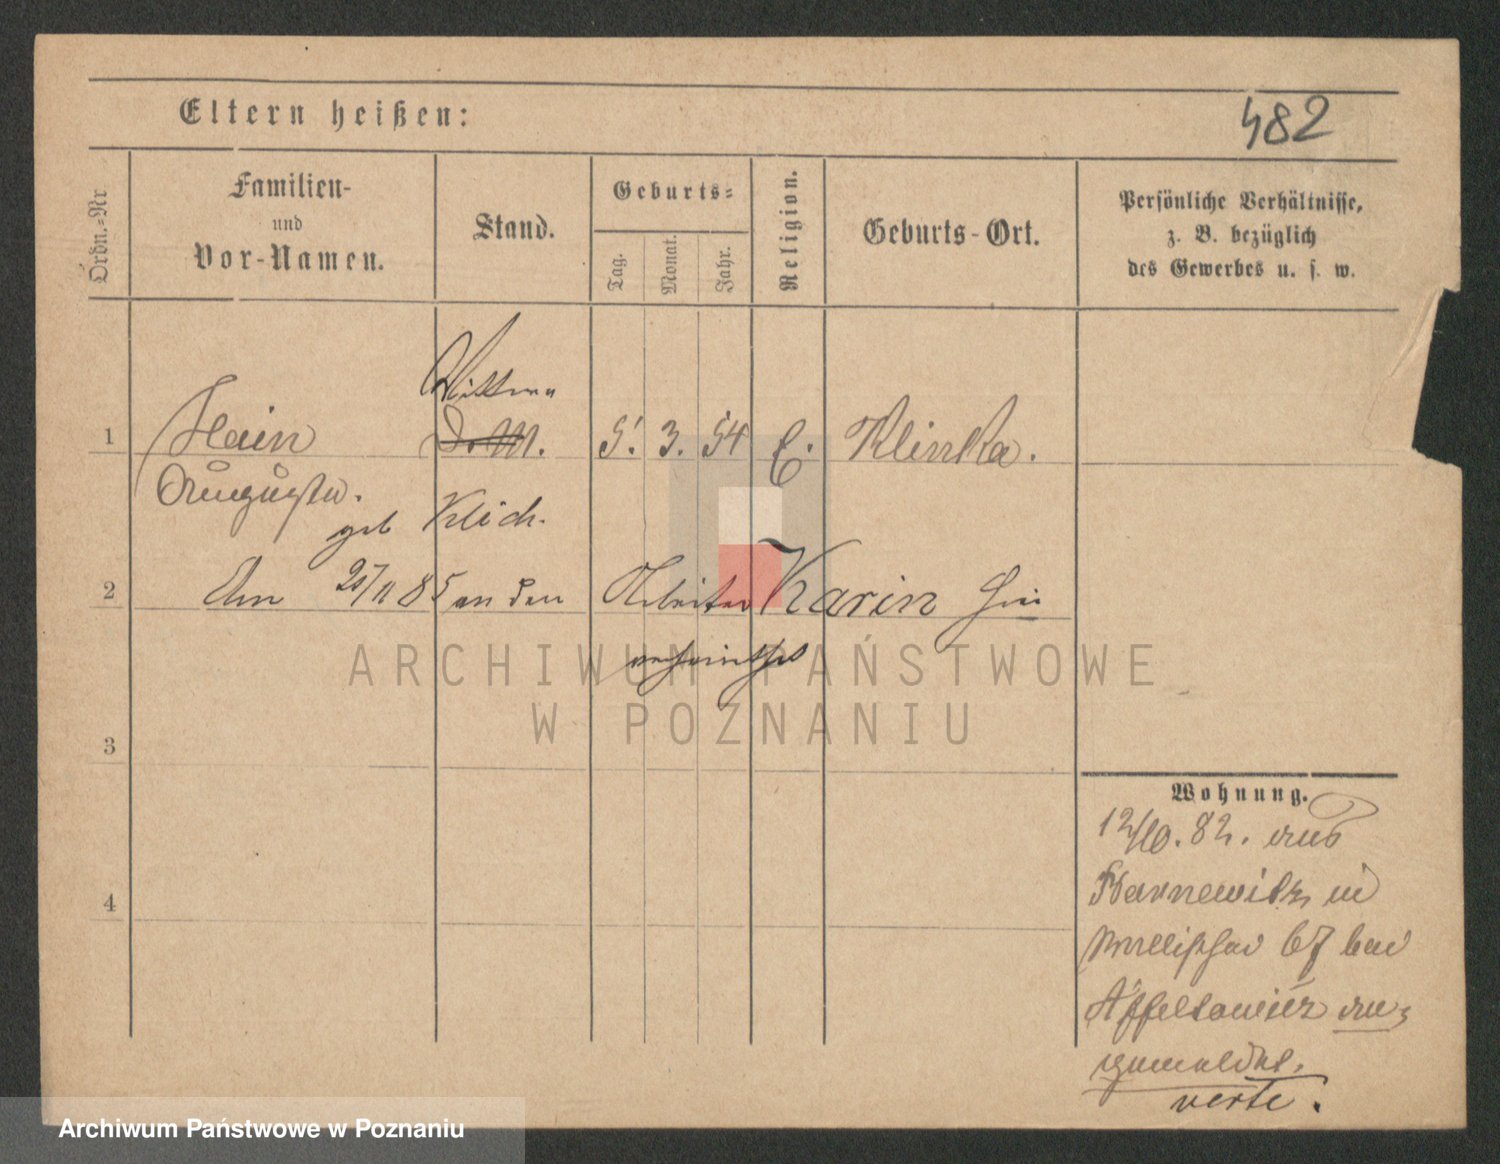 482
Eltern heißen:
Ordn.-Nr
Familien-
und
Vor-Namen.
Stand.
Geburts-
Tag.
Monat.
Jahr.
Religion.
Geburts-Ort.
Persönliche Verhältnisse,
z. B. bezüglich
des Gewerbes u. s. w.
Wittwe
1 Hain D. M. 5. 3. 54 E. Klinka.
Augusta.
geb Klich.
2 Am 20/11 85 an den Arbeiter Karin hier
verheirathet
ARCHIWUM PAŃSTWOWE
W POZNANIU
3
4
Wohnung.
12/10. 82. aus
in
67 bei
an-
gemeldet.
verte.
Archiwum Państwowe w Poznaniu